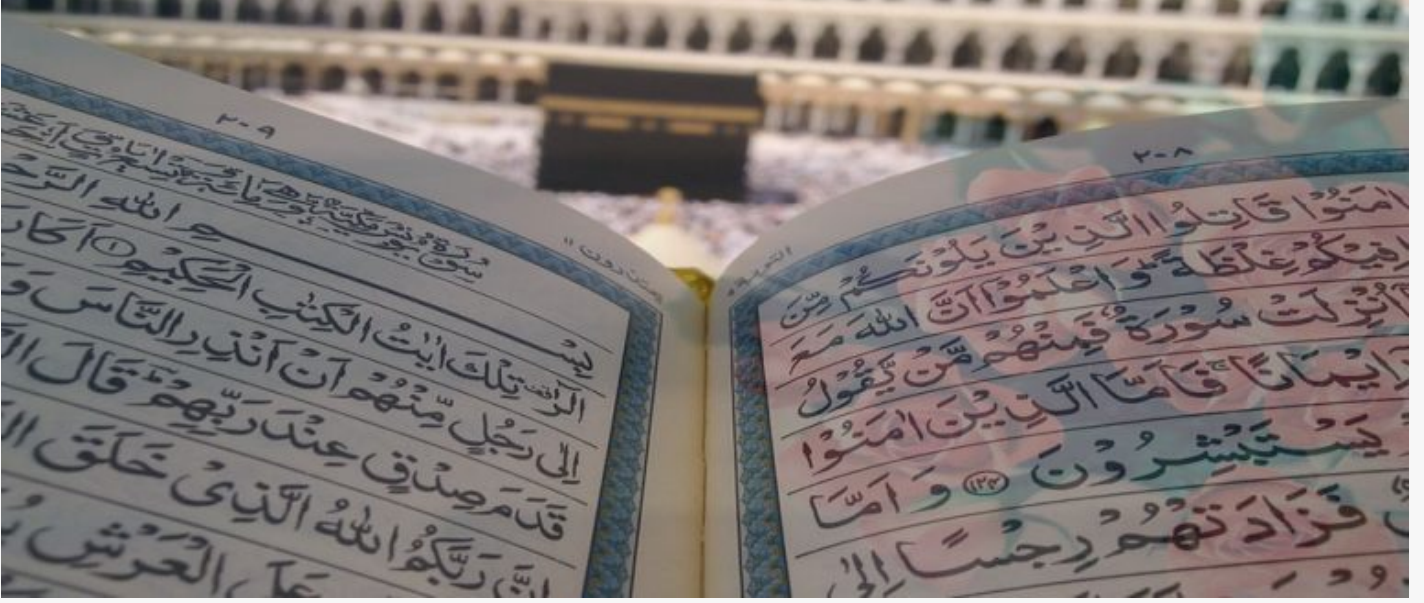 ٢٠٨
التوبة ٩
اٰمَنُوْا قَاتِلُوا الَّذِيْنَ يَلُوْنَكُمْ مِّنَ
فِيْكُمْ غِلْظَةً ؕ وَ اعْلَمُوْۤا اَنَّ اللّٰهَ مَعَ
اُنْزِلَتْ سُوْرَةٌ فَمِنْهُمْ مَّنْ يَّقُوْلُ
اِيْمَانًا ۚ فَاَمَّا الَّذِيْنَ اٰمَنُوْا
يَسْتَبْشِرُوْنَ ﴿١٢٤﴾ وَ اَمَّا
فَزَادَتْهُمْ رِجْسًا اِلٰى
٢٠٩
يعتذرون ١١
سُوْرَةُ يُوْنُسَ مَكِّيَّةٌ
بِسْمِ اللّٰهِ
الٓرٰ تِلْكَ اٰيٰتُ الْكِتٰبِ الْحَكِيْمِ ﴿١﴾ اَكَانَ
اِلٰى رَجُلٍ مِّنْهُمْ اَنْ اَنْذِرِ النَّاسَ وَ
قَدَمَ صِدْقٍ عِنْدَ رَبِّهِمْ ؕ قَالَ
اِنَّ رَبَّكُمُ اللّٰهُ الَّذِيْ خَلَقَ
عَلَى الْعَرْشِ